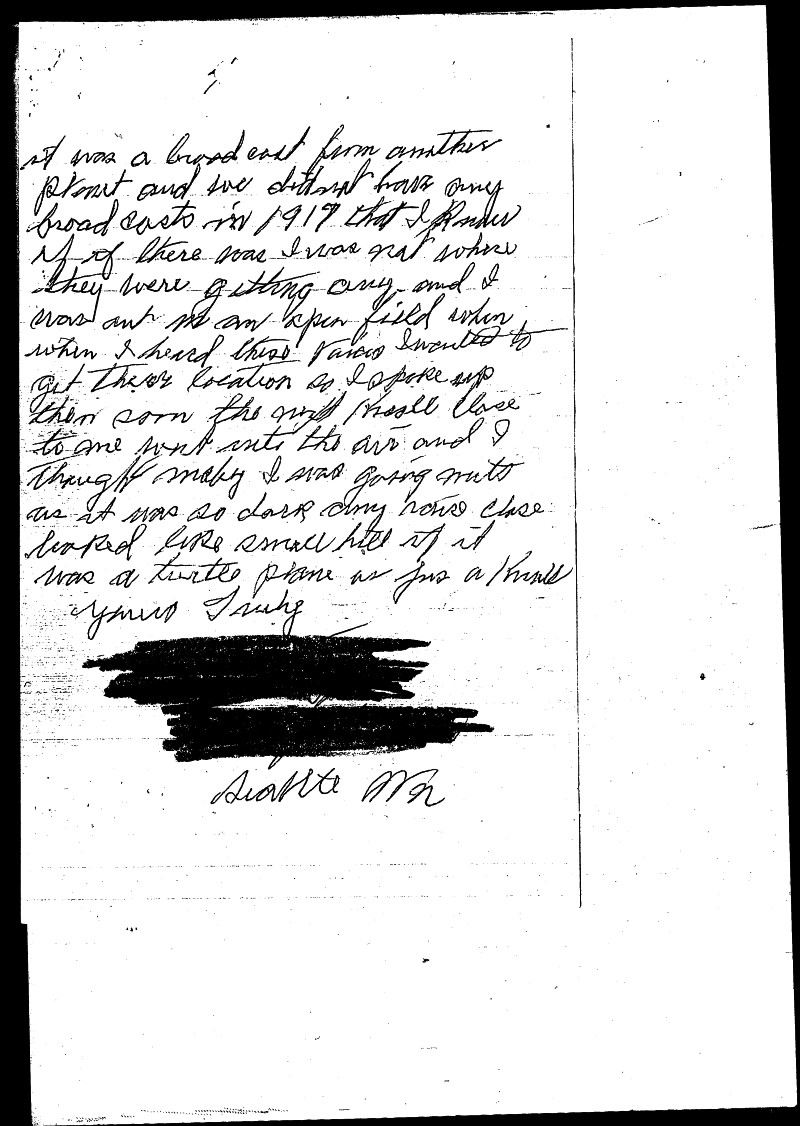 it was a broad cast from another
planet and we did not have any
broad casts in 1919 that I know
of if there was I was not where
they were getting any and I
was out in an open field when
when I heard these voices I wanted to
get there location so I spoke up
then soon the next knoll close
to me went into the air and I
thought maby I was going nuts
as it was so dark any close
looked like small hill if it
was a turtle plane or jus a knoll
yours Truly
Seattle Wn